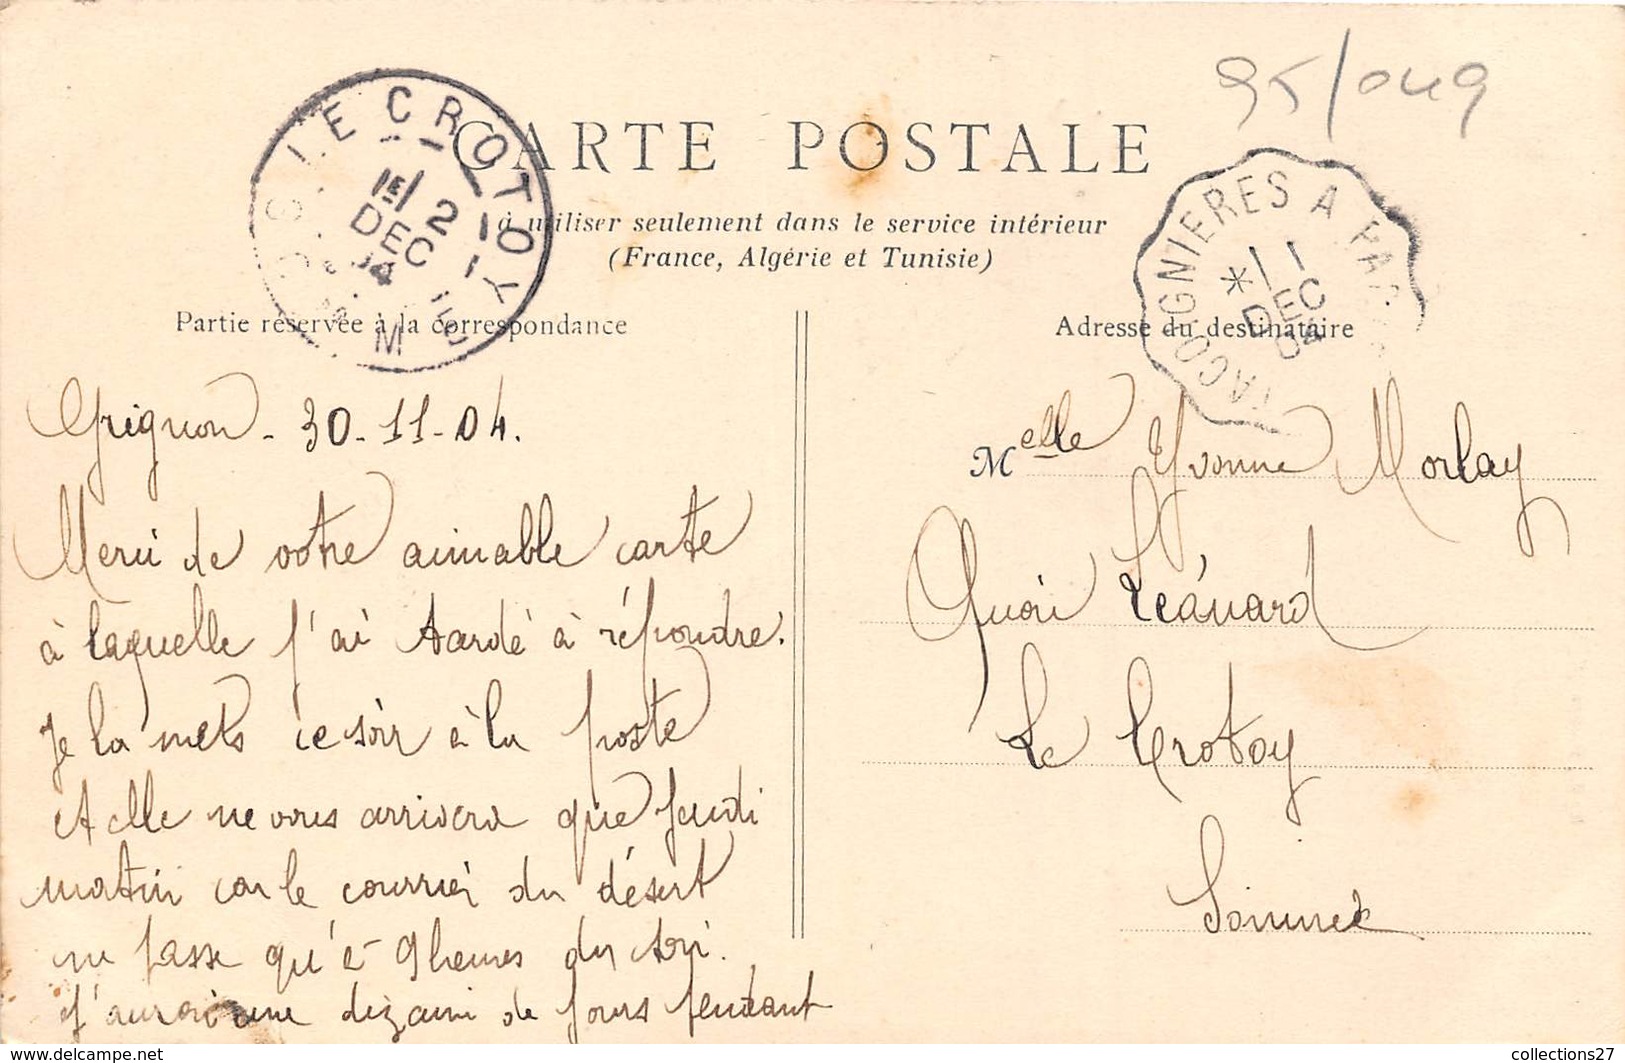 95/049
CARTE POSTALE
à utiliser seulement dans le service intérieur
(France, Algérie et Tunisie)
LE CROTOY
SOMME
1E/ 2
DEC
04
TACOGNIERES A
* 1 1
DEC
04
Partie réservée à la correspondance
Grignon - 30-11-04.
Merci de votre aimable carte
à laquelle j'ai tardé à répondre.
Je la mets ce soir à la poste
et elle ne vous arrivera que Jeudi
matin car le courrier du désert
ne passe qu'à 9 heures du soir.
J'aurai une dizaine de jours pendant
Adresse du destinataire
Melle Yvonne Morlay
Quai Léonard
Le Crotoy
Somme
http://www.delcampe.net
collections27